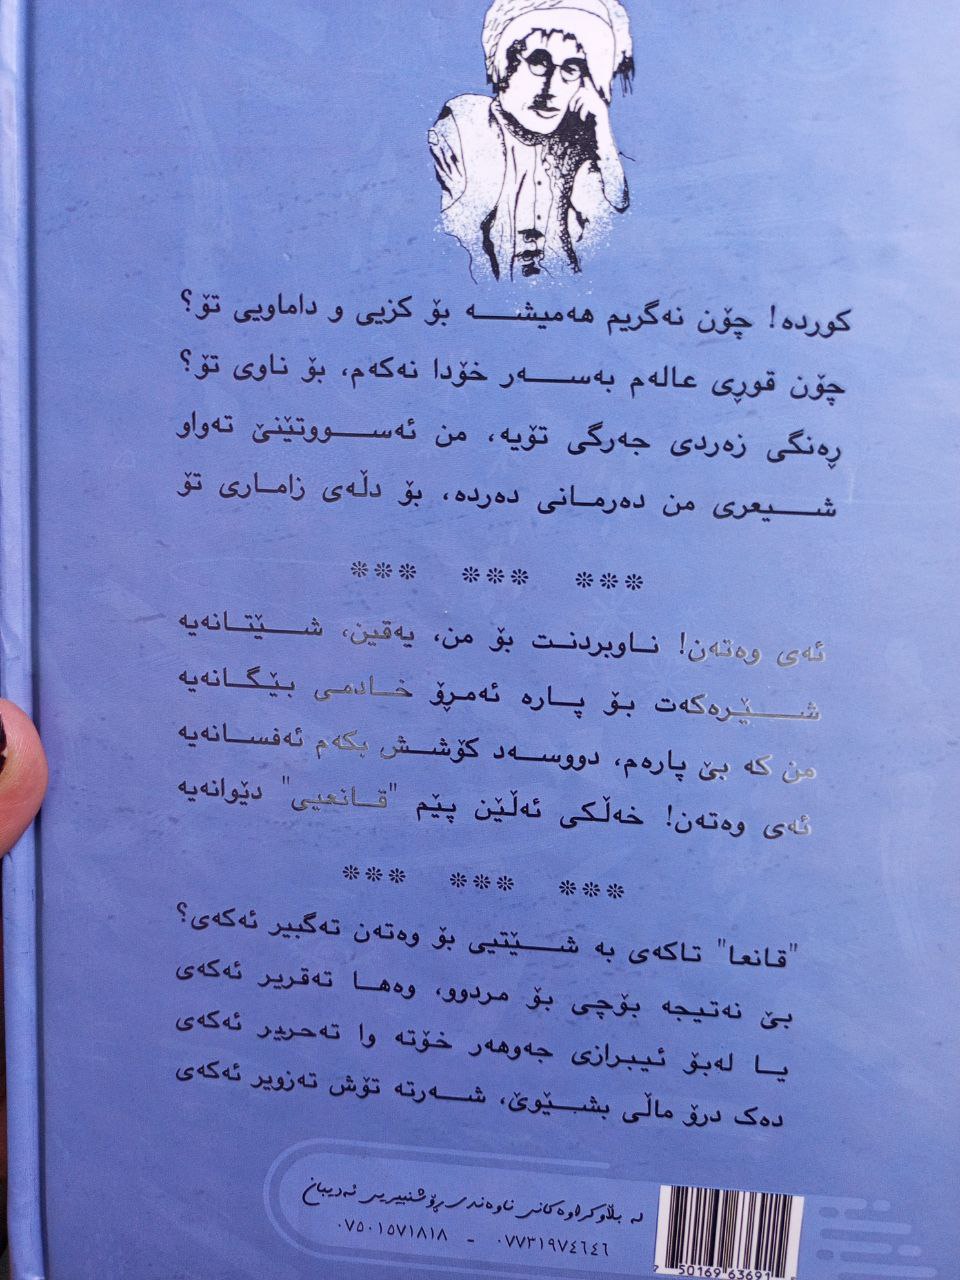 کوردە! چۆن نەگریم هەمیشـــە بۆ کزیی و داماویی تۆ؟
چۆن قوڕی عالەم بەســـەر خۆدا نەکەم، بۆ ناوی تۆ؟
ڕەنگی زەردی جەرگی تۆیە، من ئەســـووتێنێ تەواو
شـــیعری من دەرمانی دەردە، بۆ دڵەی زامـاری تۆ
*** *** ***
ئەی وەتەن! نـاوبردنـت بۆ من، یەقین، شـــێتـانەیە
شـــێـرەکەت بـۆ پـارە ئەمـڕۆ خـادمی بـێـگـانەیە
من کە بێ پارەم، دووسـەد کۆشـش بکەم ئەفسـانەیە
ئەی وەتەن! خەڵکی ئەڵێن پێم "قـانعیی" دێوانەیە
*** *** ***
"قانعا" تـاکەی بە شـــێتیی بۆ وەتەن تەگبیر ئەکەی؟
بێ نەتیجە بۆچی بۆ مردوو، وەهـا تەقریر ئەکەی
یـا لەبۆ ئیبرازی جەوهەر خۆتە وا تەحریر ئەکەی
دەک درۆ ماڵی بشـێوێ، شـەرتە تۆش تەزویر ئەکەی
لە بڵاوکراوەکانی ناوەندی ڕۆشنبیریی ئەدیبان
٠٧٧٣١٩٧٤٦٤٦ - ٠٧٥٠١٥٧١٨١٨
7 50169 63691